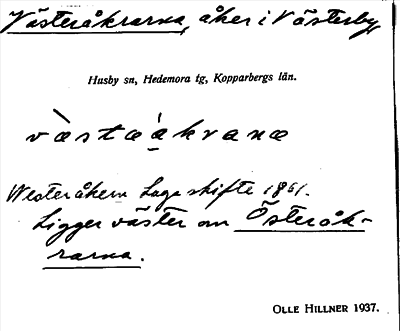 Västeråkrarna, åker i Västerby,
Husby sn, Hedemora tg, Kopparbergs län.
vàstæákranæ
Westeråkern Laga skifte 1861.
Ligger väster om Österåk-
rarna.
OLLE HILLNER 1937.